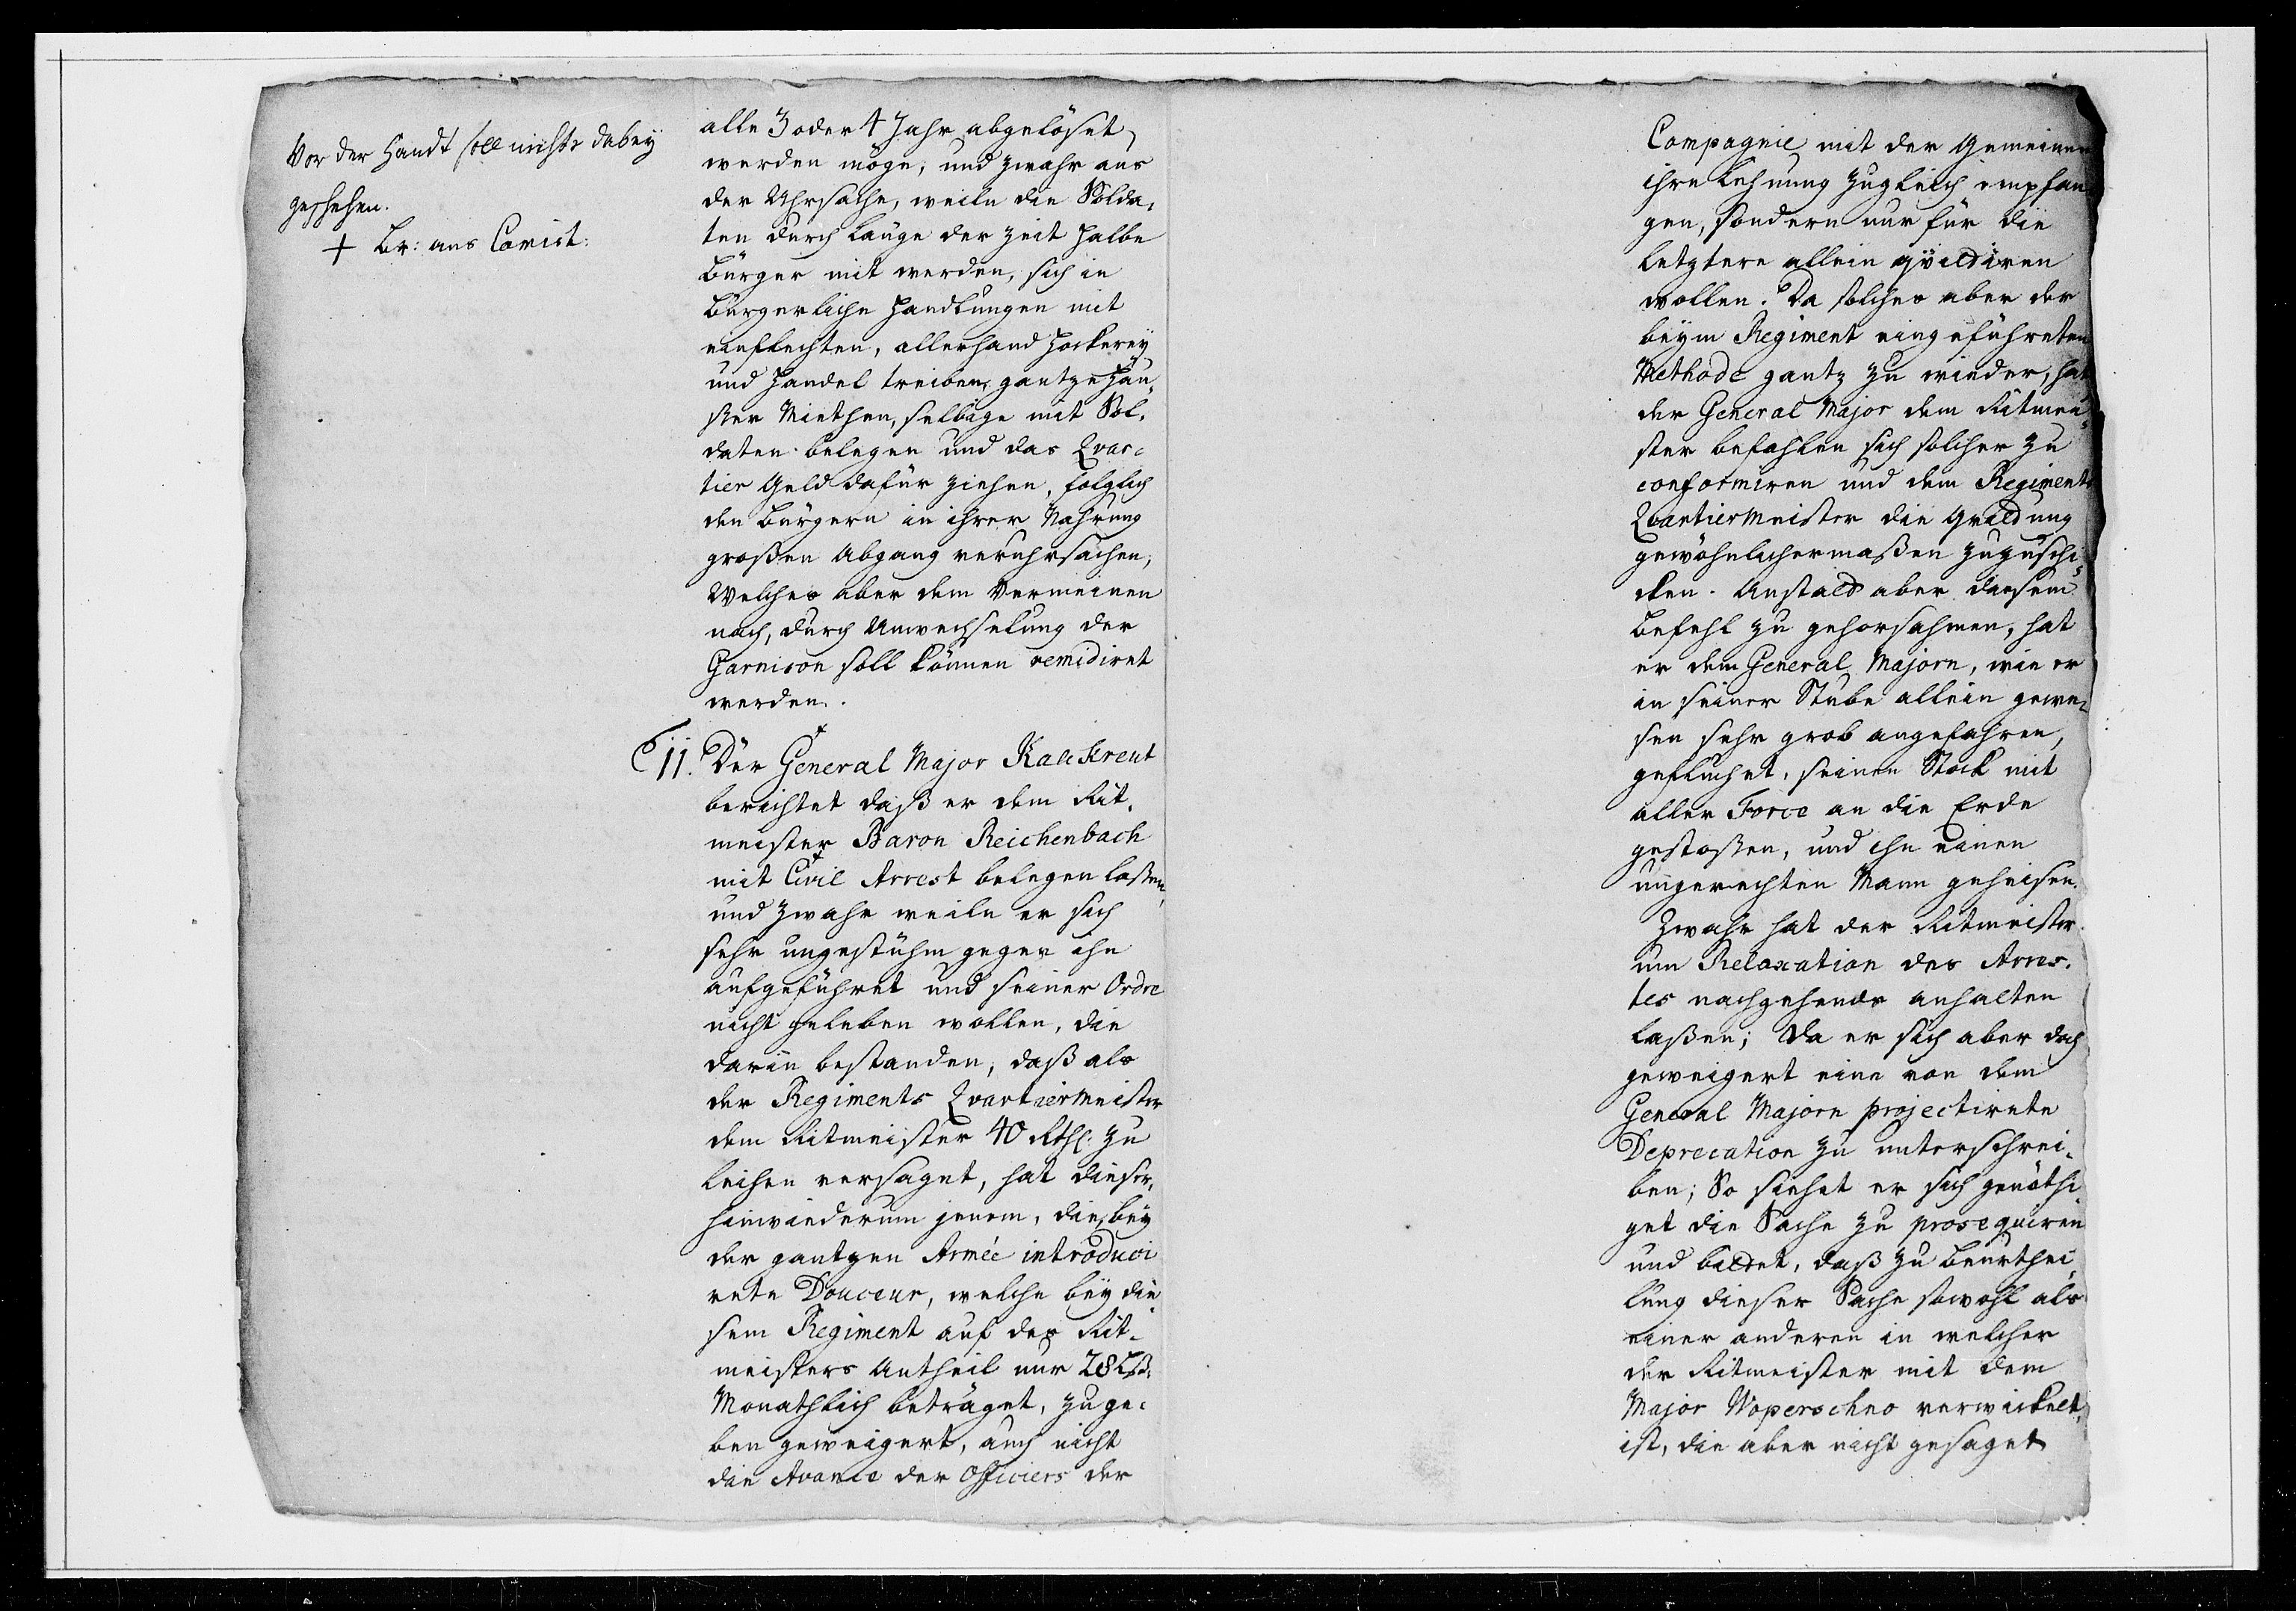 Vor der Handt soll nichts dabey
geschehen.
+ Br: ans Comict:
alle 3 oder 4 Jahr abgelöset
werden möge, und zwahr aus
der Uhrsache, weiln die Solda-
ten durch länge der Zeit halbe
Bürger mit werden, sich in
bürgerliche Handlungen mit
einflechten, allerhand Hockerey
und Handel treiben, gantze Häu-
ser Miethen, selbige mit Sol-
daten belegen und das Qvar-
tier Geld dafür ziehen, folglich
den Bürgern in ihrer Nahrung
großen Abgang veruhrsachen,
Welches aber dem Vermeinen
nach, durch Umwechselung der
Garnison soll können remidiret
werden.
11. Der General Major Kalckreut
berichtet daß er dem Rit-
meister Baron Reichenbach
mit Civil Arrest belegen laßen,
und zwahr weiln er sich
sehr ungestühm gegen ihn
aufgeführet und seiner Ordre
nicht geleben wollen, die
darin bestanden, daß als
der Regiments Qvartiermeister
dem Ritmeister 40 Rthl. zu
leihen versaget, hat dieser,
hinwiederum jenem, die bey
der gantzen Armée introduci
rete Douceur, welche bey die-
sem Regiment auf des Rit-
meisters Antheil nur 28 Lß:
Monathlich beträget, zu ge-
ben geweigert, auch nicht
die Avance der Officiers der
Compagnie mit der Gemeinen
ihre Lehnung zugleich empfan
gen, sondern nur für die
letztere allein qvittiren
wollen. Da solches aber der
beym Regiment eingeführeten
Methode gantz zu wieder, hat
der General Major dem Ritmei-
ster befohlen sich solcher zu
conformiren und dem Regiments
Qvartiermeister die Qvittung
gewöhnlichermaßen zuzuschi-
cken. Anstatt aber diesem
Befehl zu gehorsahmen, hat
er dem General Majorn, wie er
in seiner Stube allein gewe-
sen sehr grob angefahren,
gefluchet, seinen Stock mit
aller Force an die Erde
gestoßen, und ihn einen
ungerechten Mann geheisen.
Zwahr hat der Ritmeister
um Relaxation des Arres-
tes nachgehends anhalten
laßen; Da er sich aber doch
geweigert eine von dem
General Majorn projectirete
Deprecation zu unterschrei-
ben; So siehet er sich genöthi-
get die Sache zu prosequiren
und bittet, daß zu Beurthei-
lung dieser Sache sowohl als
einer anderen in welcher
der Ritmeister mit dem
Major Woperschno verwickelt
ist, die aber nicht gesaget